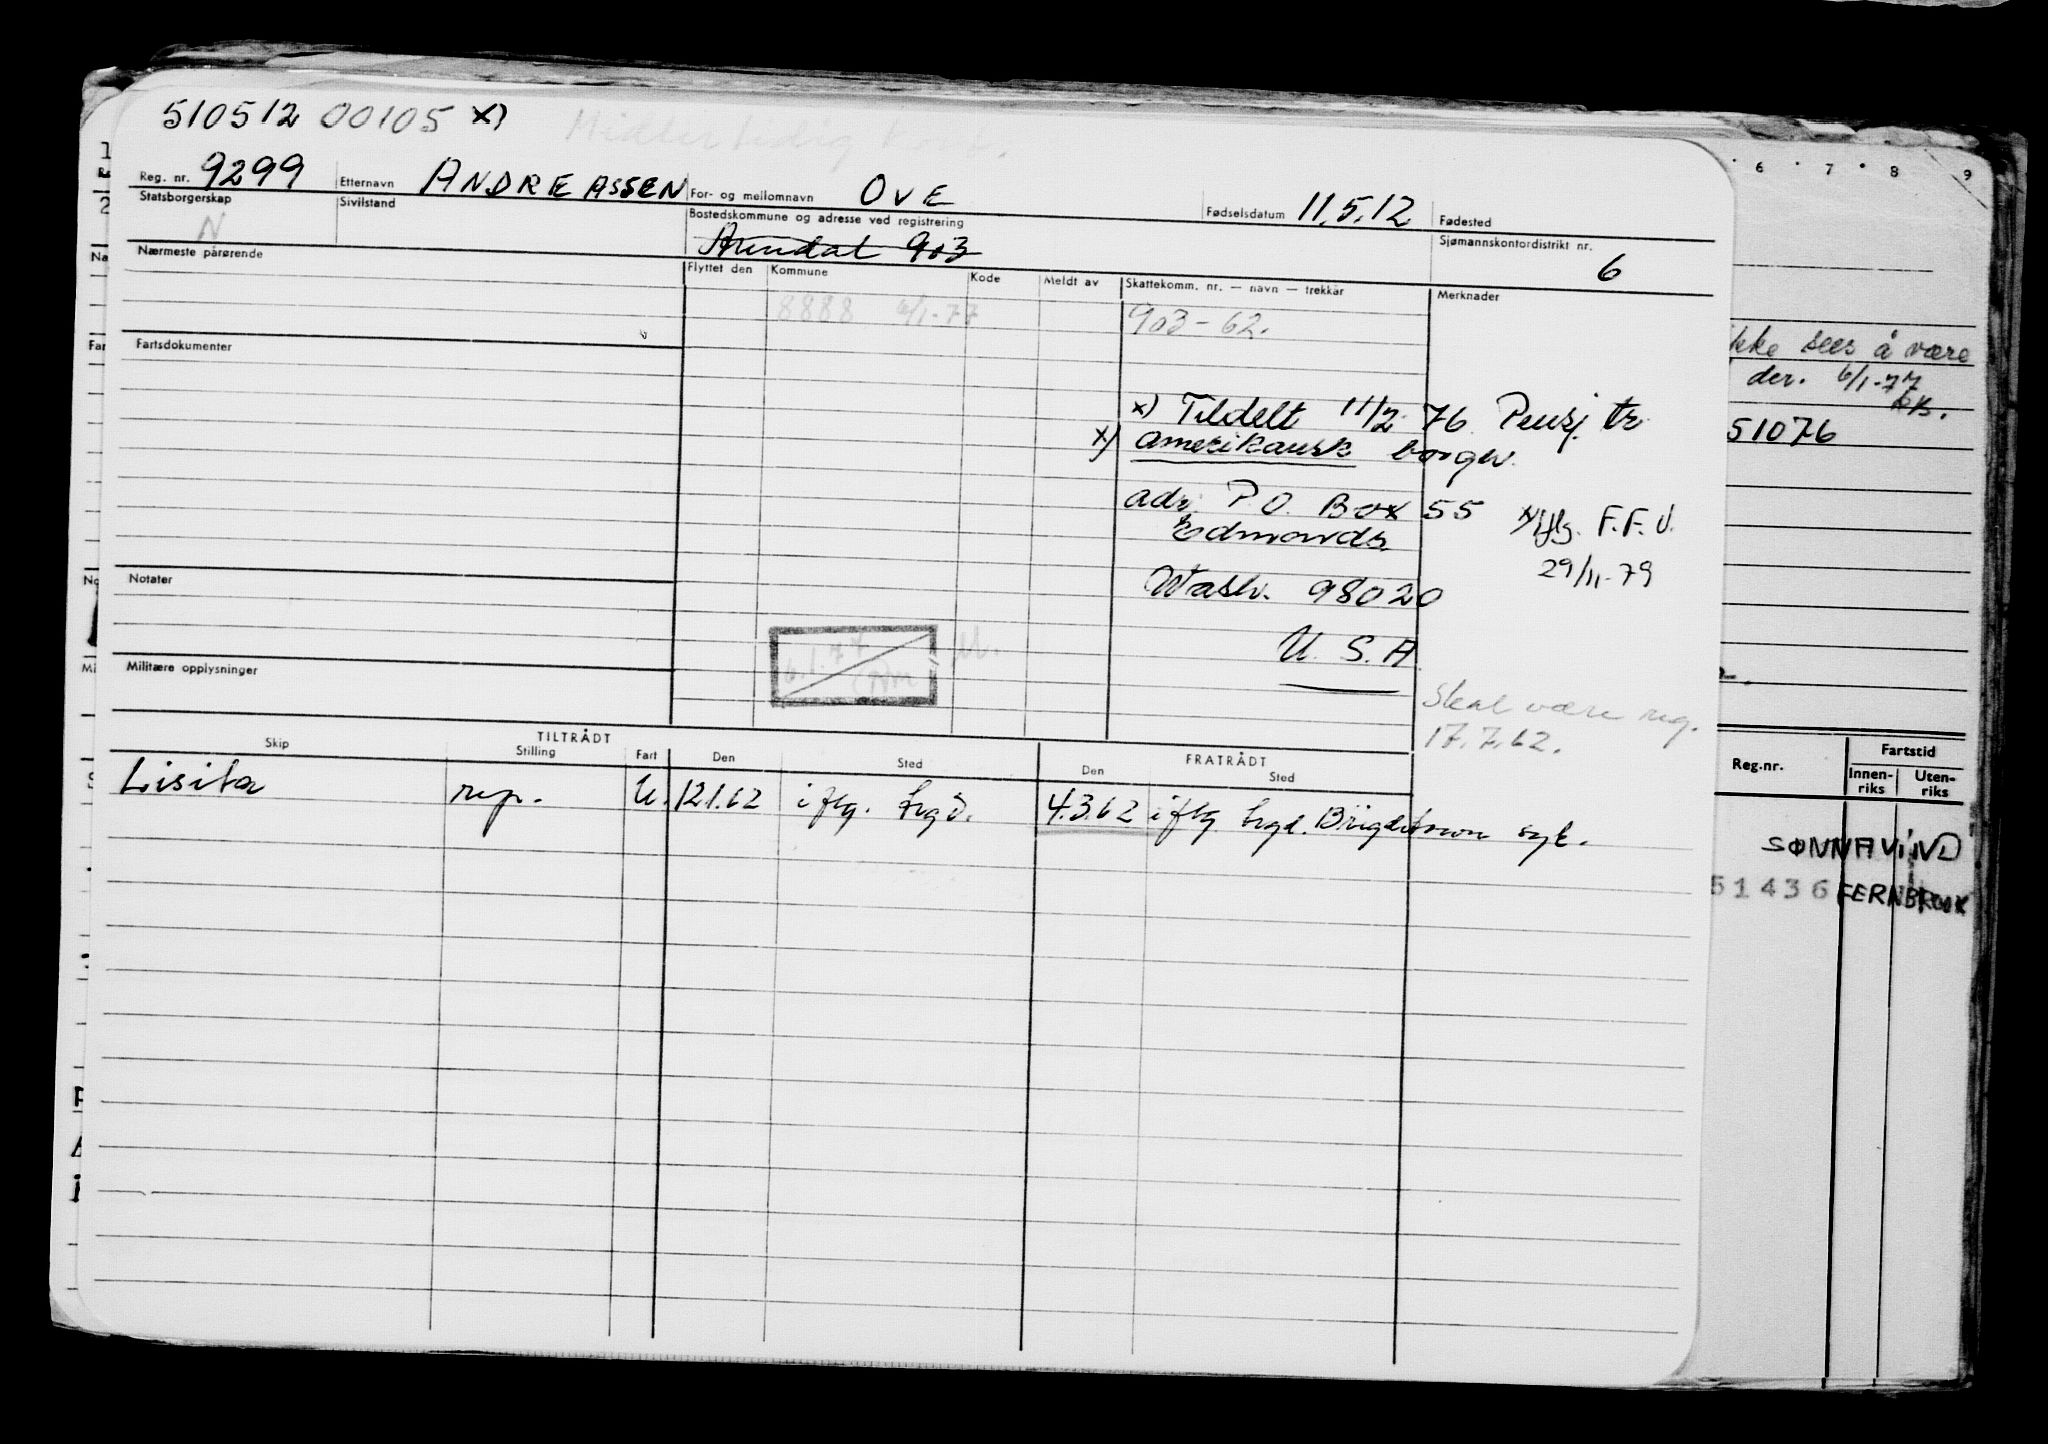 510512 00105 x)
Midlertidig kort.
Reg. nr. 9299 Etternavn ANDREASSEN For- og mellomnavn OVE Fødselsdatum 11.5.12 Fødested
Statsborgerskap N Sivilstand Bostedskommune og adresse ved registrering Arendal 903 Sjømannskontordistrikt nr. 6
Nærmeste pårørende Flyttet den Kommune Kode Meldt av Skattekomm. nr. — navn — trekkår Merknader
8888 6/1-77 903-62.
Fartsdokumenter
x) Tildelt 11/2 76 Pensj. tr.
x) amerikansk borger.
adr. P.O. Box 55
Edmonds.
Wash. 98020
U.S.A.
x) Iflg. F.F.U.
29/11-79
Notater
6.1.77
Militære opplysninger
Skal være reg.
17.7.62.
TILTRÅDT FRATRÅDT
Skip Stilling Fart Den Sted Den Sted
Lisita rep. U. 12.1.62 iflg. trgd. 4.3.62 iflg trgd. Brigdetown syk.
6 7 8 9
ikke sees å være
der. 6/1-77
51076
Reg.nr. Fartstid
Innenriks Utenriks
SØNNAVIND
51436 FERNBROOK